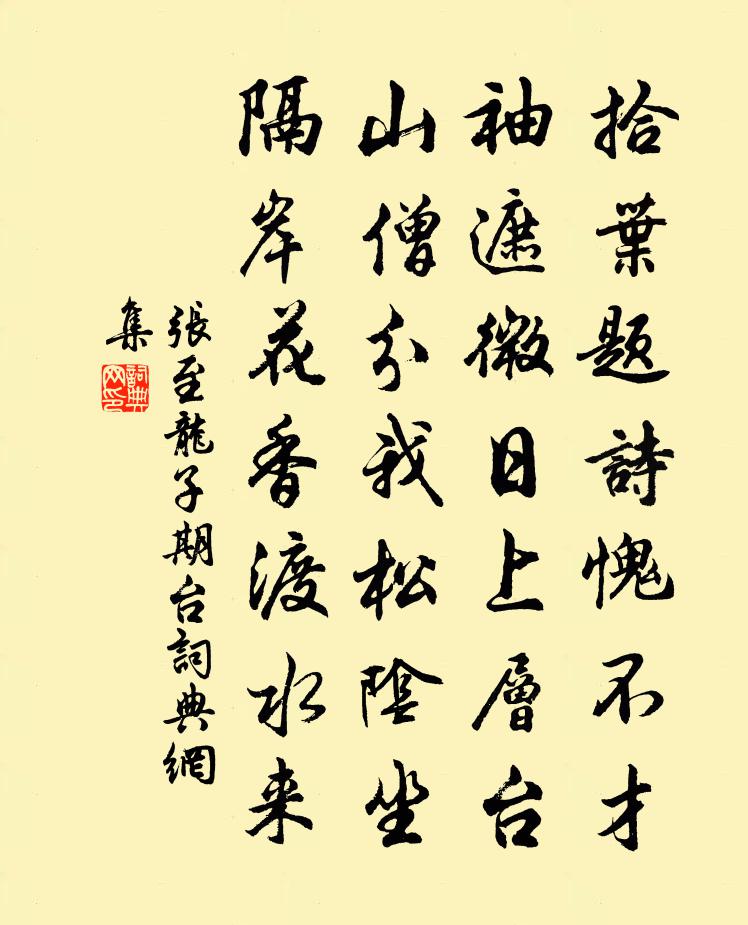 拾葉题詩愧不才
袖遮微日上層台
山僧分我松陰坐
隔岸花香渡水来
張至龍子期台詞典網
集
詞典
网印